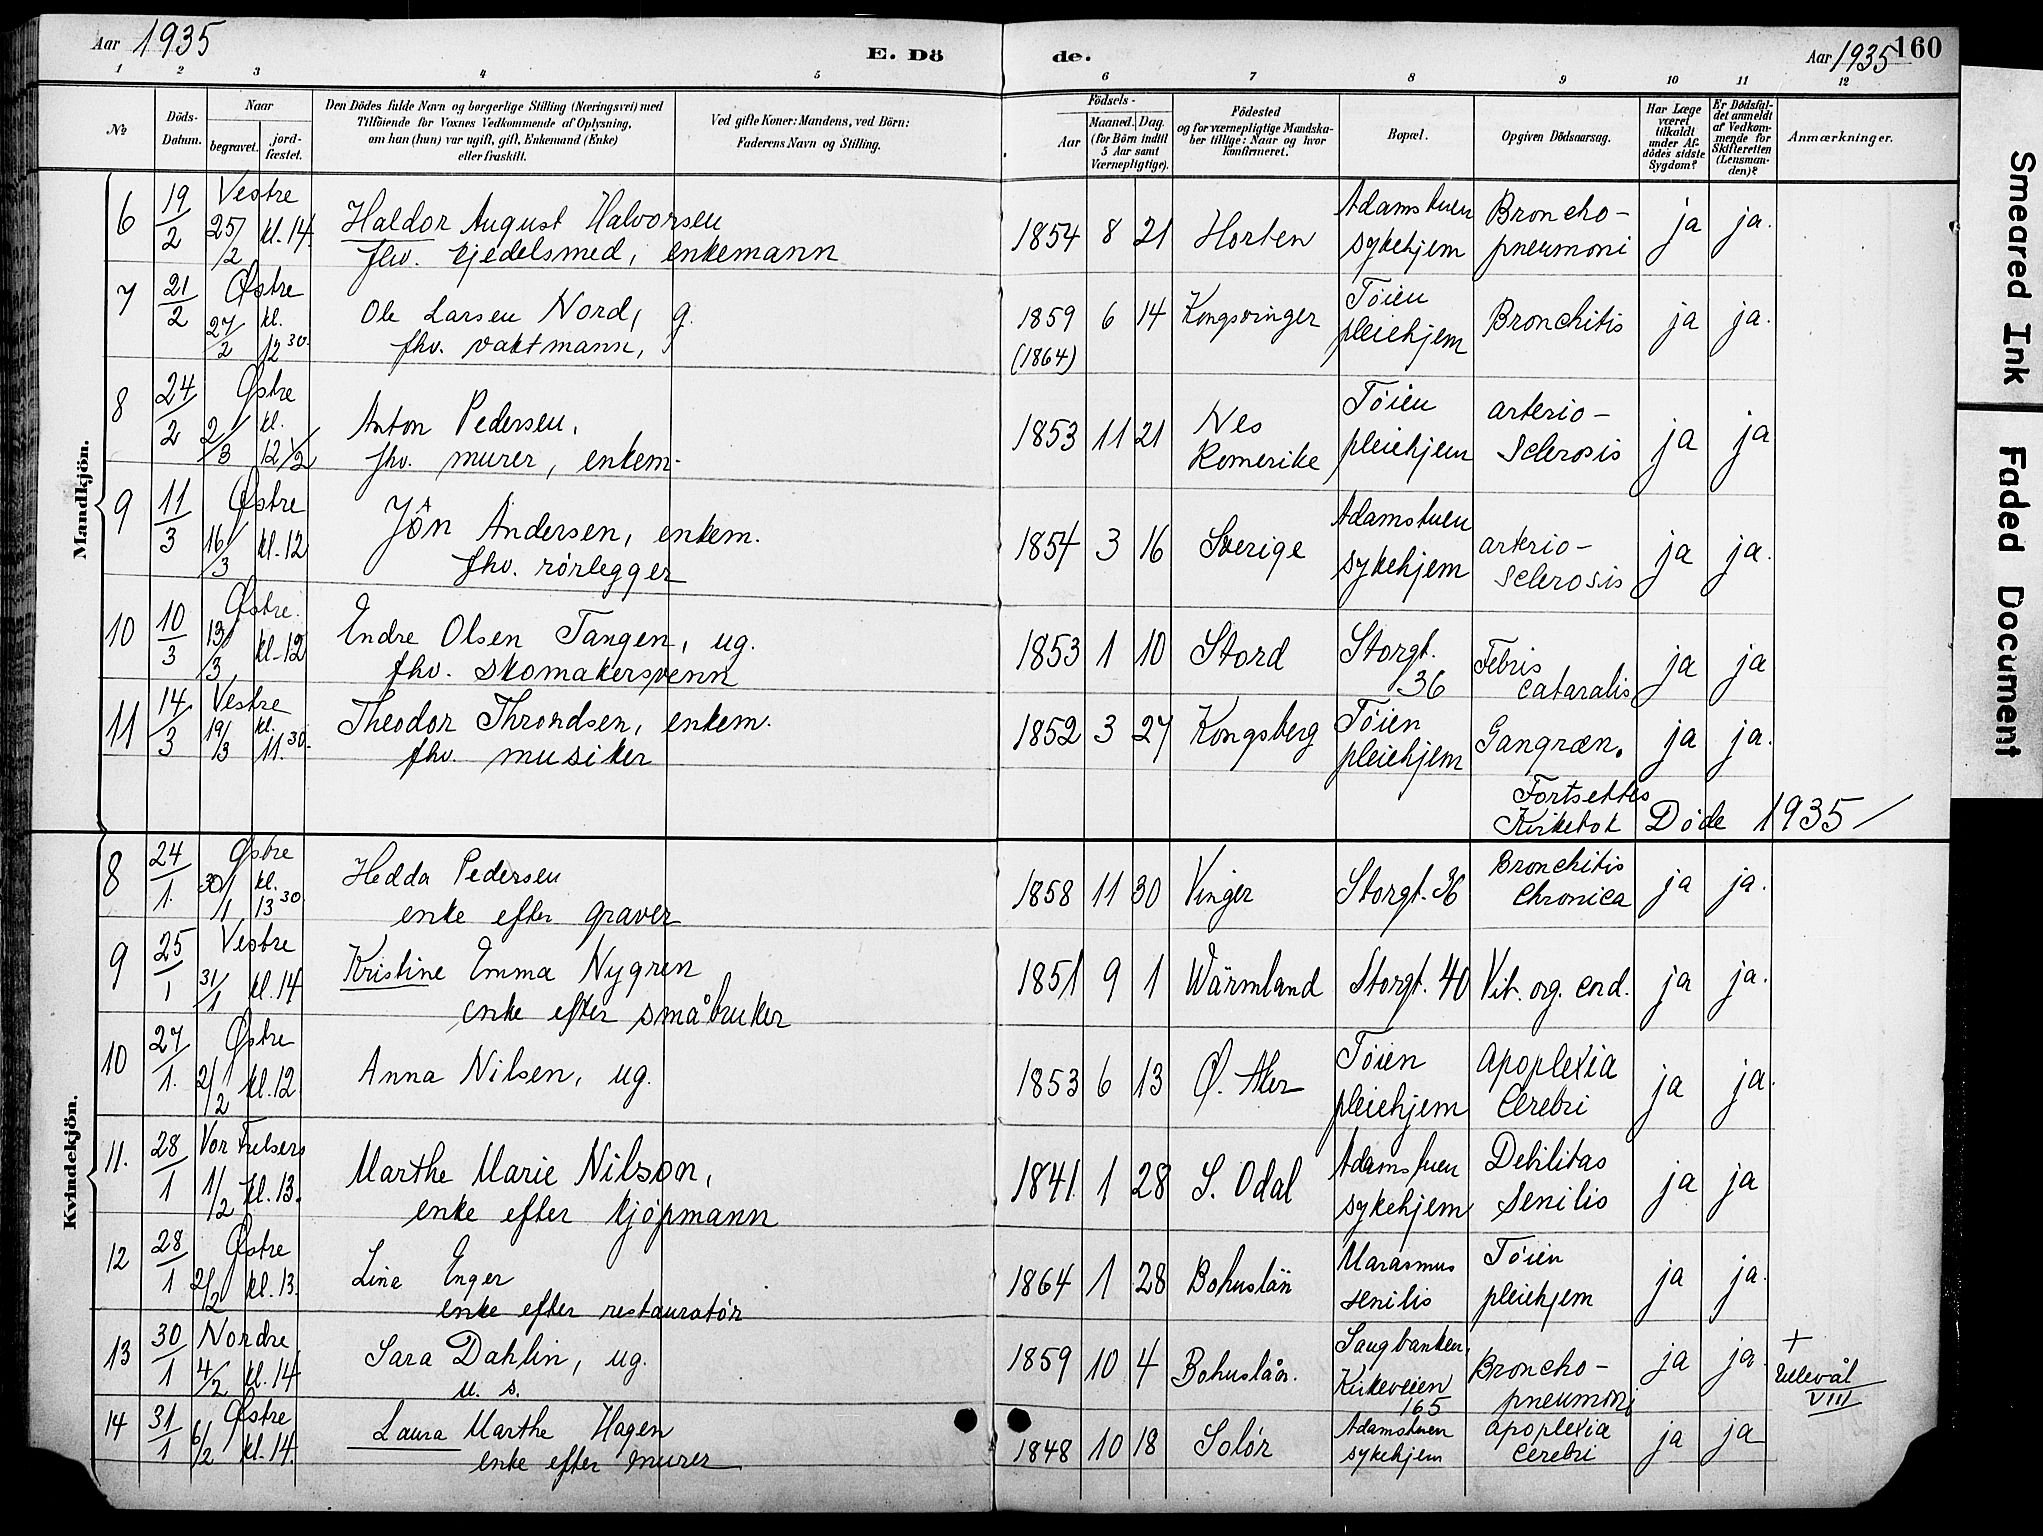 Aar 1935
E. Dö
de.
Aar 1935
160
1 2 3 4 5 6 7 8 9 10 11 12
№
Döds-
Datum.
Naar
begravet.
jord-
fæstet.
Den Dödes fulde Navn og borgerlige Stilling (Næringsvei) med
Tilföiende for Voxnes Vedkommende af Oplysning,
om han (hun) var ugift, gift, Enkemand (Enke)
eller fraskilt.
Ved gifte Koner: Mandens, ved Börn:
Faderens Navn og Stilling.
Födsels-
Aar
Maaned. Dag.
(for Börn indtil
5 Aar samt
Værnepligtige).
Födested
og for værnepligtige Mandska-
ber tillige: Naar og hvor
konfirmeret.
Bopæl.
Opgiven Dödsaarsag.
Har Læge
været
tilkaldt
under Af-
dödes sidste
Sygdom?
Er Dödsfal-
det anmeldt
af Vedkom-
mende for
Skifteretten
(Lensman-
den)?
Anmærkninger.
Mandkjön.
6 19/2 Vestre 25/2 kl. 14.
Haldor August Halvorsen
fhv. kjedelsmed, enkemann
1854 8 21 Horten
Adamstuen
sykehjem
Broncho-
pneumoni
ja ja.
7 21/2 Østre 27/2 kl. 12 30.
Ole Larsen Nord, g.
fhv. vaktmann,
1859 6 14 Kongsvinger
(1864)
Tøien
pleiehjem
Bronchitis
ja ja.
8 24/2 Østre 2/3 kl. 12 1/2
Anton Pedersen,
fhv. murer, enkem.
1853 11 21
Nes
Romerike
Tøien
pleiehjem
arterio-
sclerosis
ja ja
9 11/3 Østre 16/3 kl. 12
Jôn Andersen, enkem.
fhv. rørlegger
1854 3 16 Sverige
Adamstuen
sykehjem
arterio-
sclerosis
ja ja.
10 10/3 Østre. 13/3 kl. 12
Endre Olsen Tangen, ug.
fhv. skomakersvenn
1853 1 10 Stord
Storgt.
36
Febris
cataralis
ja ja
11 14/3 Vestre 19/3 kl. 11.30.
Theodor Throndsen, enkem.
fhv. musiker
1852 3 27 Kongsberg
Tøien
pleiehjem
Gangræn.
ja ja.
Fortsettes
Kirkebok Døde 1935
Kvindekjön.
8 24/1. Østre 30/1 kl. 13 30
Hedda Pedersen
enke efter graver
1858 11 30 Vinger Storgt. 36
Bronchitis
Chronica
ja ja.
9 25/1 Vestre 31/1 kl. 14
Kristine Emma Nygren
enke efter småbruker
1851 9 1 Wärmland Storgt. 40 Vit. org. cord. ja ja.
10 27/1. Østre 2/2 kl. 12
Anna Nilsen, ug.
1853 6 13 Ø. Aker
Tøien
pleiehjem
apoplexia
Cerebri
ja ja.
11. 28/1 Vor Frelsers 1/2 kl. 13.
Marthe Marie Nilson,
enke efter kjøpmann
1841 1 28 S. Odal
Adamstuen
sykehjem
Debilitas
senilis
ja ja
12 28/1 Østre 2/2 kl. 13.
Line Enger
enke efter restauratør
1864 1 28 Bohuslän
Marasmus
senilis
Tøien
pleiehjem
ja ja.
13 30/1 Nordre 4/2 kl. 14
Sara Dahlin, ug.
u. s.
1859 10 4 Bohuslän.
Saugbanken,
Kirkeveien
165
Broncho-
pneumoni
ja ja.
+
Ullevål
VIII
14 31/1 Østre 6/2 kl. 14.
Laura Marthe Hagen
enke efter murer
1848 10 18 Solør
Adamstuen
sykehjem
apoplexia
Cerebri
ja ja
Smeared Ink
Faded Document